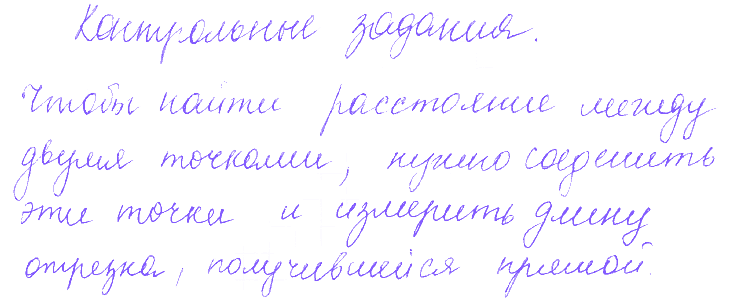 Контрольные задания.
Чтобы найти расстояние между
двумя точками, нужно соединить
эти точки и измерить длину
отрезка, получившийся прямой.